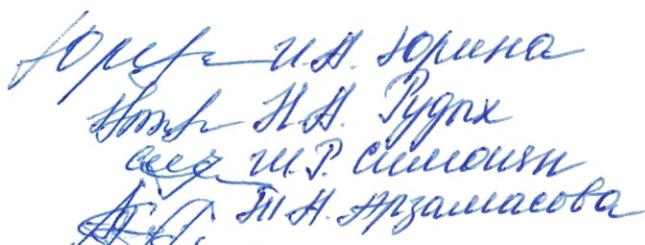 И.А. Юрина
Н.А. Рудых
Ш.Р. Симонян
Т.Н. Арзамасова